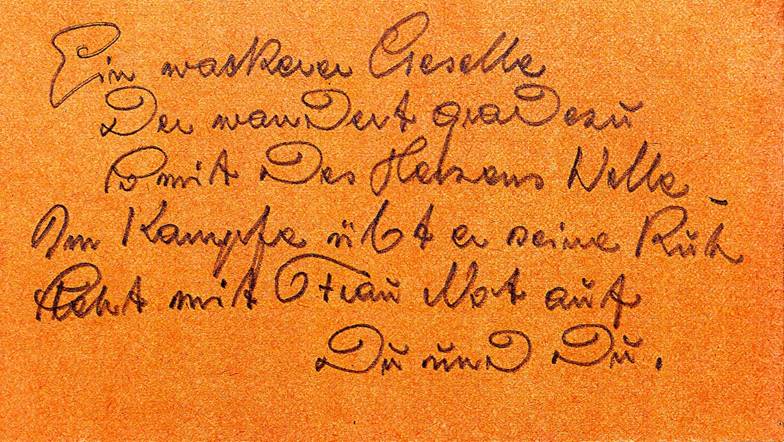 Ein wackerer Geselle
Der wandert gradezu
So mit des Herzens Welle –
Im Kampfe übt er seine Ruh
Steht mit Frau Not auf
Du und Du.